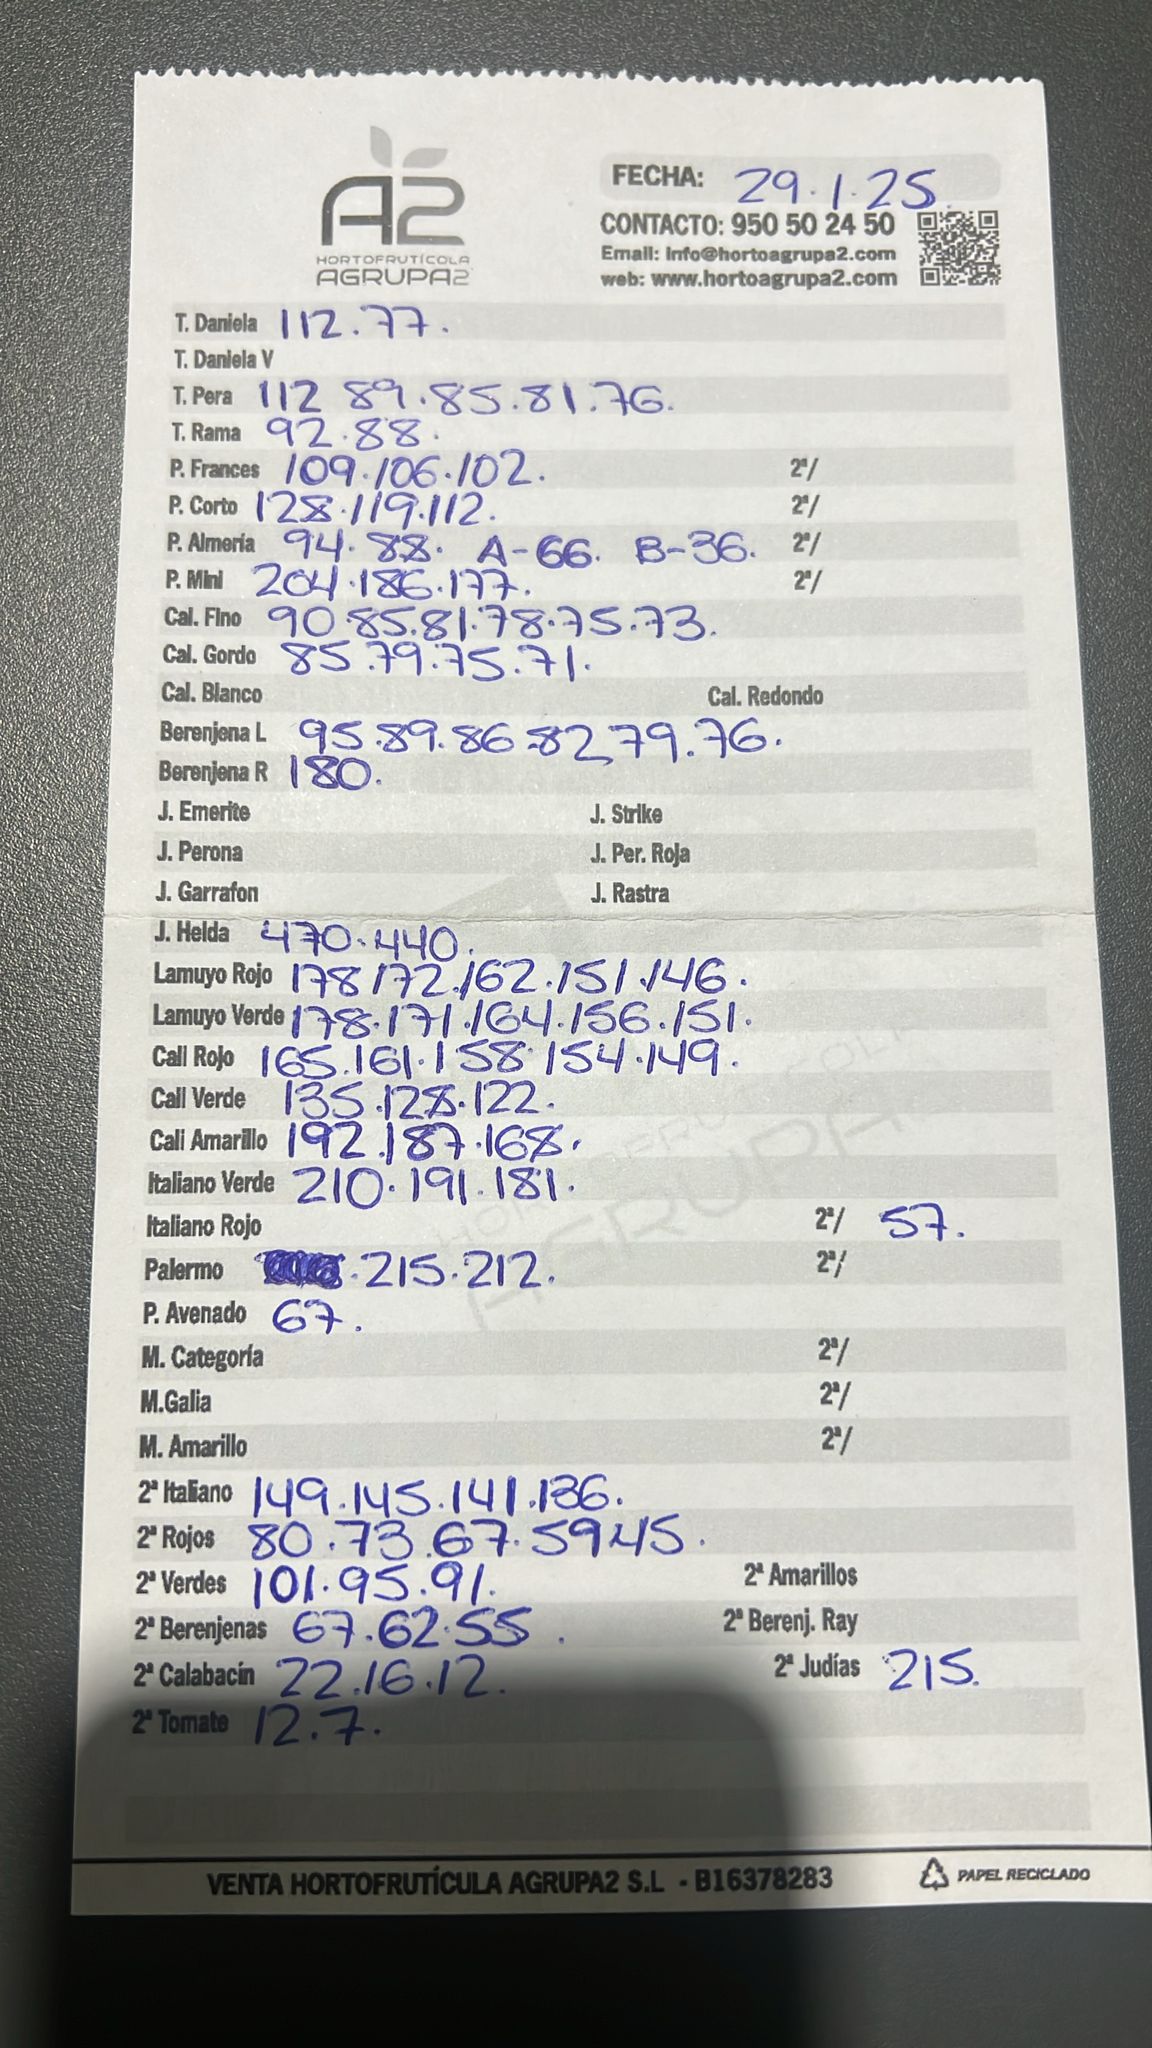 A2
HORTOFRUTÍCOLA
AGRUPA2
FECHA: 29.1.25.
CONTACTO: 950 50 24 50
Email: info@hortoagrupa2.com
web: www.hortoagrupa2.com
T. Daniela 112.77.
T. Daniela V
T. Pera 112 89.85.81.76.
T. Rama 92.88.
P. Frances 109.106.102. 2ª/
P. Corto 128.119.112. 2ª/
P. Almería 94.88. A-66. B-36. 2ª/
P. Mini 204.186.177. 2ª/
Cal. Fino 90.85.81.78.75.73.
Cal. Gordo 85.79.75.71.
Cal. Blanco Cal. Redondo
Berenjena L 95.89.86.82.79.76.
Berenjena R 180.
J. Emerite J. Strike
J. Perona J. Per. Roja
J. Garrafon J. Rastra
J. Helda 470.440.
Lamuyo Rojo 178.172.162.151.146.
Lamuyo Verde 178.171.164.156.151.
Cali Rojo 165.161.158.154.149.
Cali Verde 135.128.122.
Cali Amarillo 192.187.168.
Italiano Verde 210.191.181.
Italiano Rojo 2ª/ 57.
Palermo .215.212. 2ª/
P. Avenado 67.
M. Categoría 2ª/
M.Galia 2ª/
M. Amarillo 2ª/
2ª Italiano 149.145.141.136.
2ª Rojos 80.73.67.59.45.
2ª Verdes 101.95.91. 2ª Amarillos
2ª Berenjenas 67.62.55. 2ª Berenj. Ray
2ª Calabacín 22.16.12. 2ª Judías 215.
2ª Tomate 12.7.
VENTA HORTOFRUTÍCULA AGRUPA2 S.L - B16378283 PAPEL RECICLADO